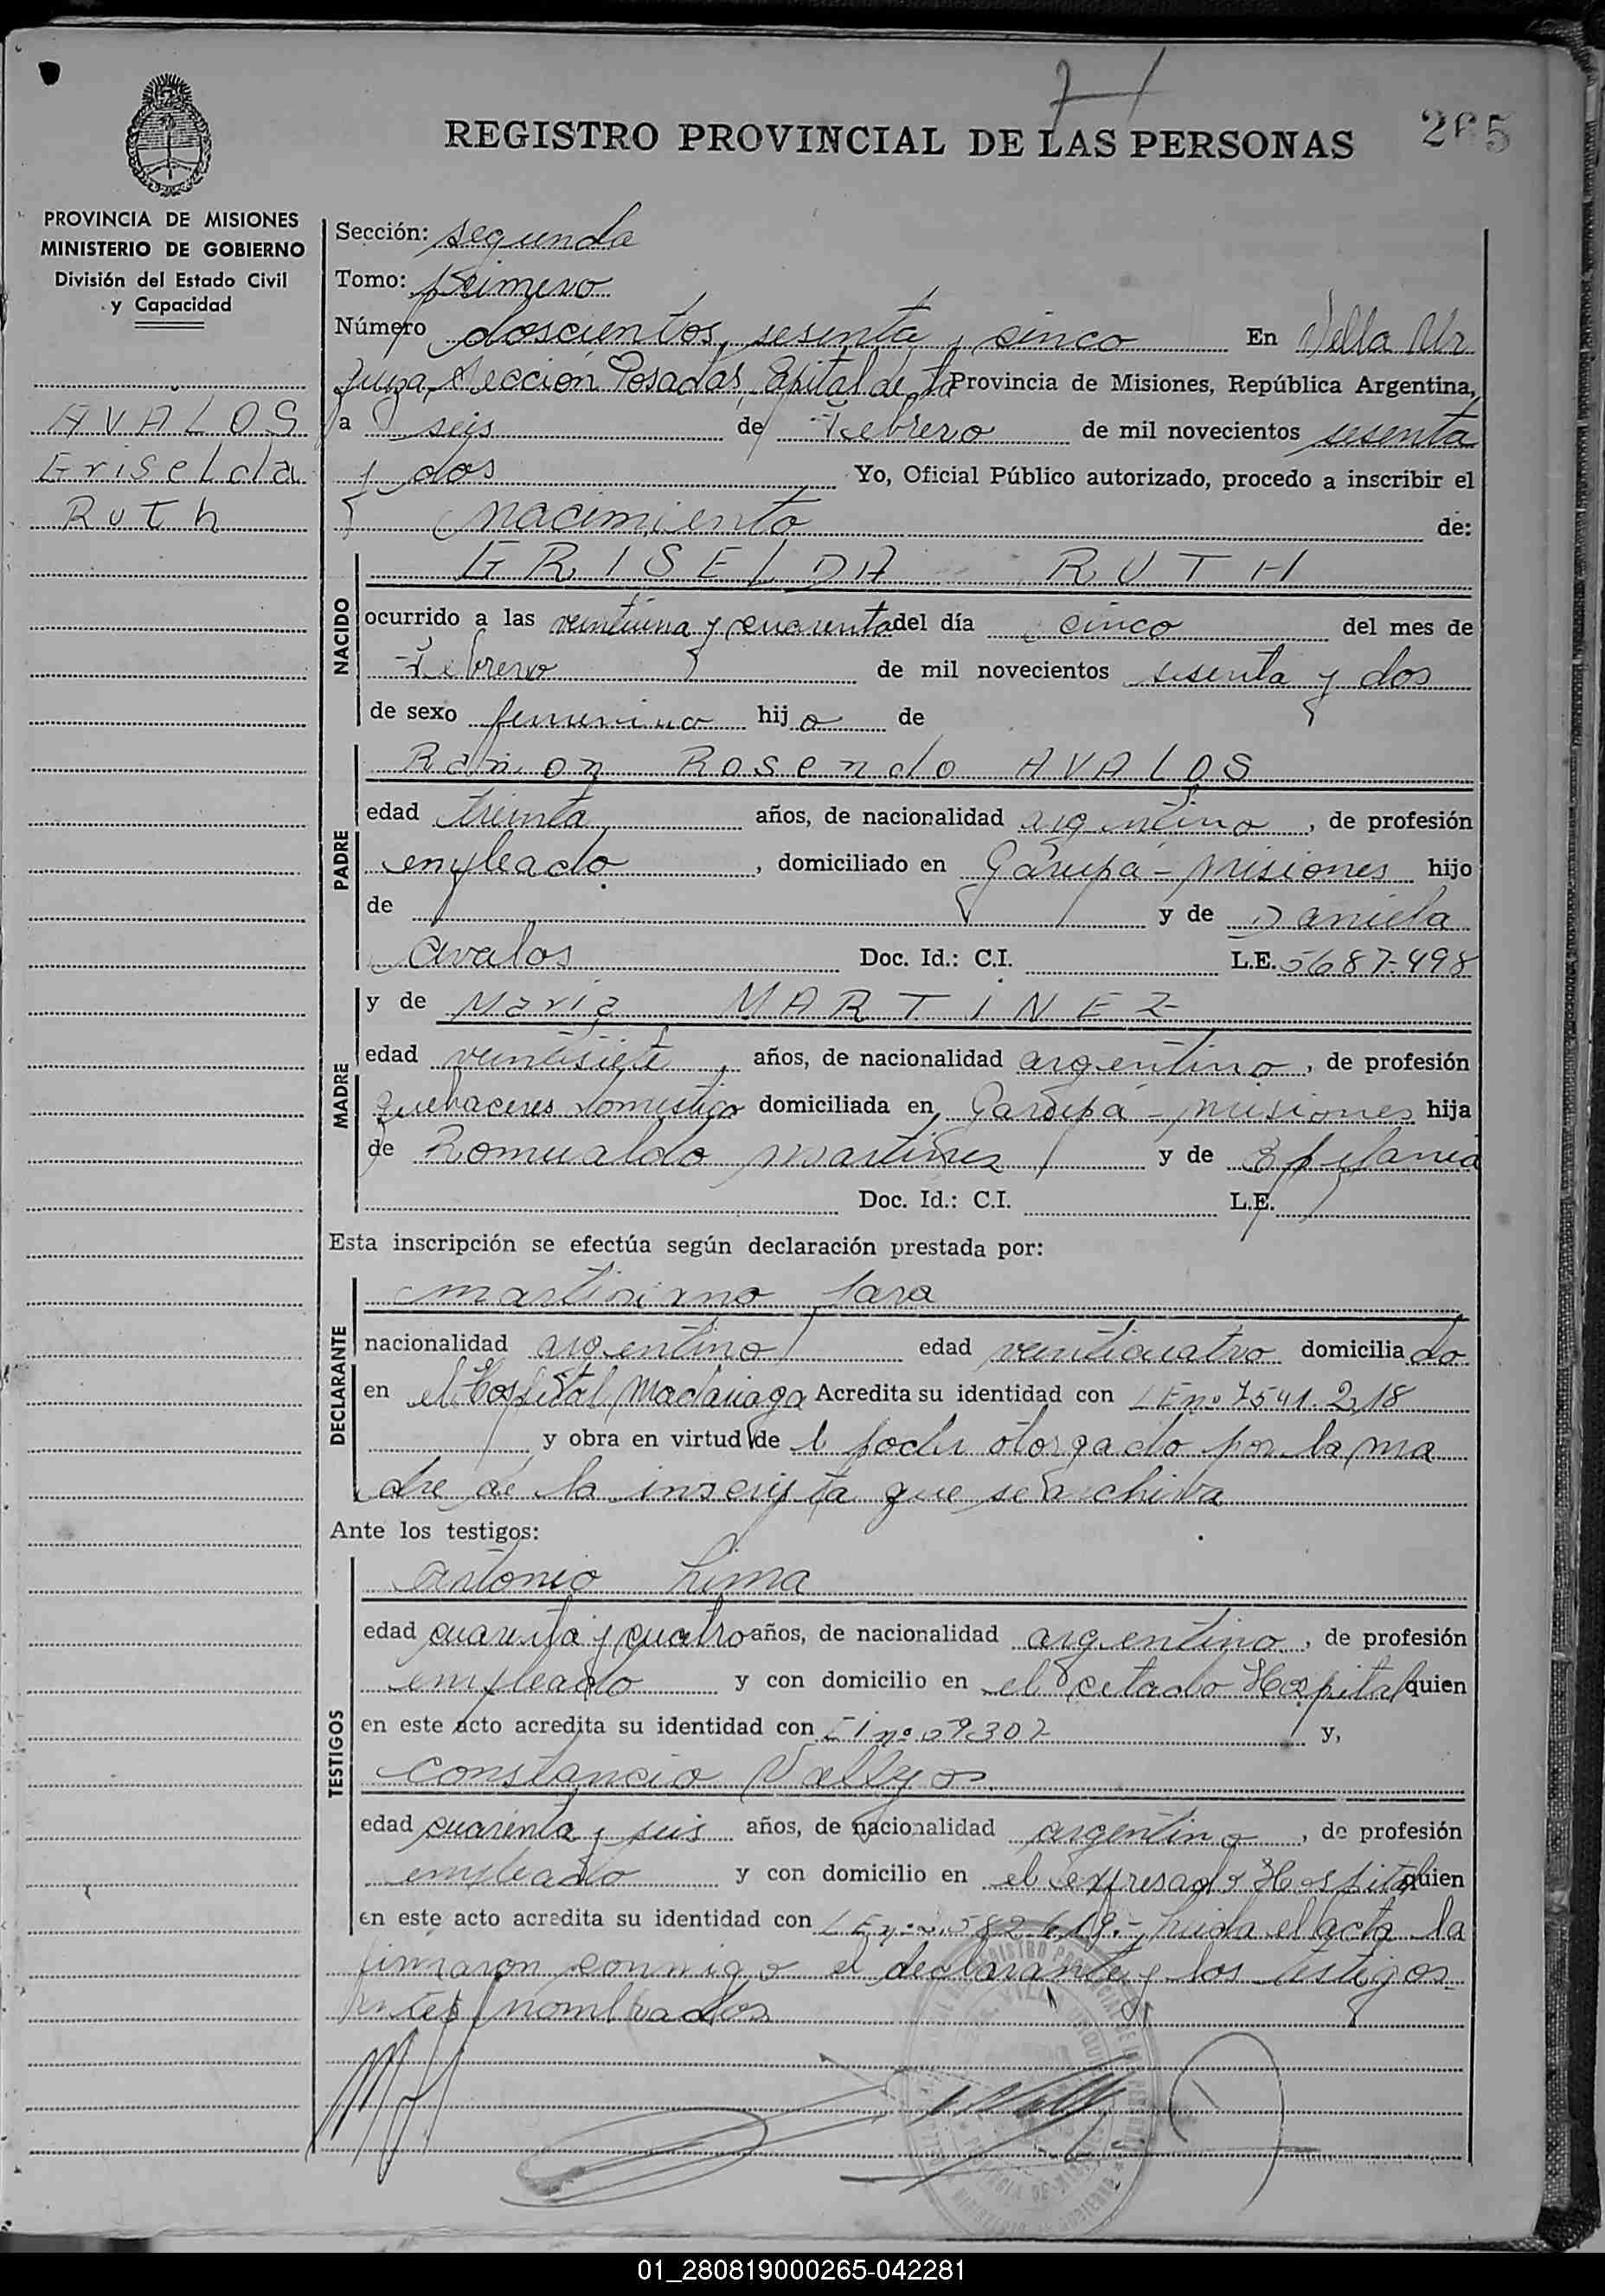 REGISTRO PROVINCIAL DE LAS PERSONAS
265
PROVINCIA DE MISIONES
MINISTERIO DE GOBIERNO
División del Estado Civil
y Capacidad
AVALOS
Griselda
Ruth
Sección: segunda
Tomo: primero
Número doscientos sesenta y cinco En Villa Ur
quiza, Sección Posadas, Capital de la Provincia de Misiones, República Argentina,
a seis de Febrero de mil novecientos sesenta
y dos Yo, Oficial Público autorizado, procedo a inscribir el
nacimiento de:
NACIDO
GRISELDA RUTH
ocurrido a las veintiuna y cuarenta del día cinco del mes de
Febrero de mil novecientos sesenta y dos
de sexo femenino hija de
PADRE
Ramon Rosendo AVALOS
edad treinta años, de nacionalidad argentino, de profesión
empleado, domiciliado en Garupá - Misiones hijo
de y de Daniela
Avalos Doc. Id.: C.I. L.E. 5687.498
MADRE
y de Maria MARTINEZ
edad veintisiete, años, de nacionalidad argentino, de profesión
quehaceres domestico domiciliada en Garupá - Misiones hija
de Romualdo Martinez y de Epifania
Doc. Id.: C.I. L.E.
Esta inscripción se efectúa según declaración prestada por:
DECLARANTE
Martiniano Jara
nacionalidad argentino edad veinticuatro domiciliado
en el Hospital Madariaga Acredita su identidad con LE nº 7541.218
y obra en virtud del poder otorgado por la ma
dre de la inscripta que se archiva
Ante los testigos:
TESTIGOS
Antonio Lima
edad cuarenta y cuatro años, de nacionalidad argentino, de profesión
empleado y con domicilio en el citado Hospital quien
en este acto acredita su identidad con CI nº 09.302 y,
Constancio Vallejos
edad cuarenta y seis años, de nacionalidad argentino, de profesión
empleado y con domicilio en el expresado Hospital quien
en este acto acredita su identidad con LE nº 2.582.619.- Leida el acta la
firmaron conmigo el declarante y los testigos
antes nombrados
01_280819000265-042281